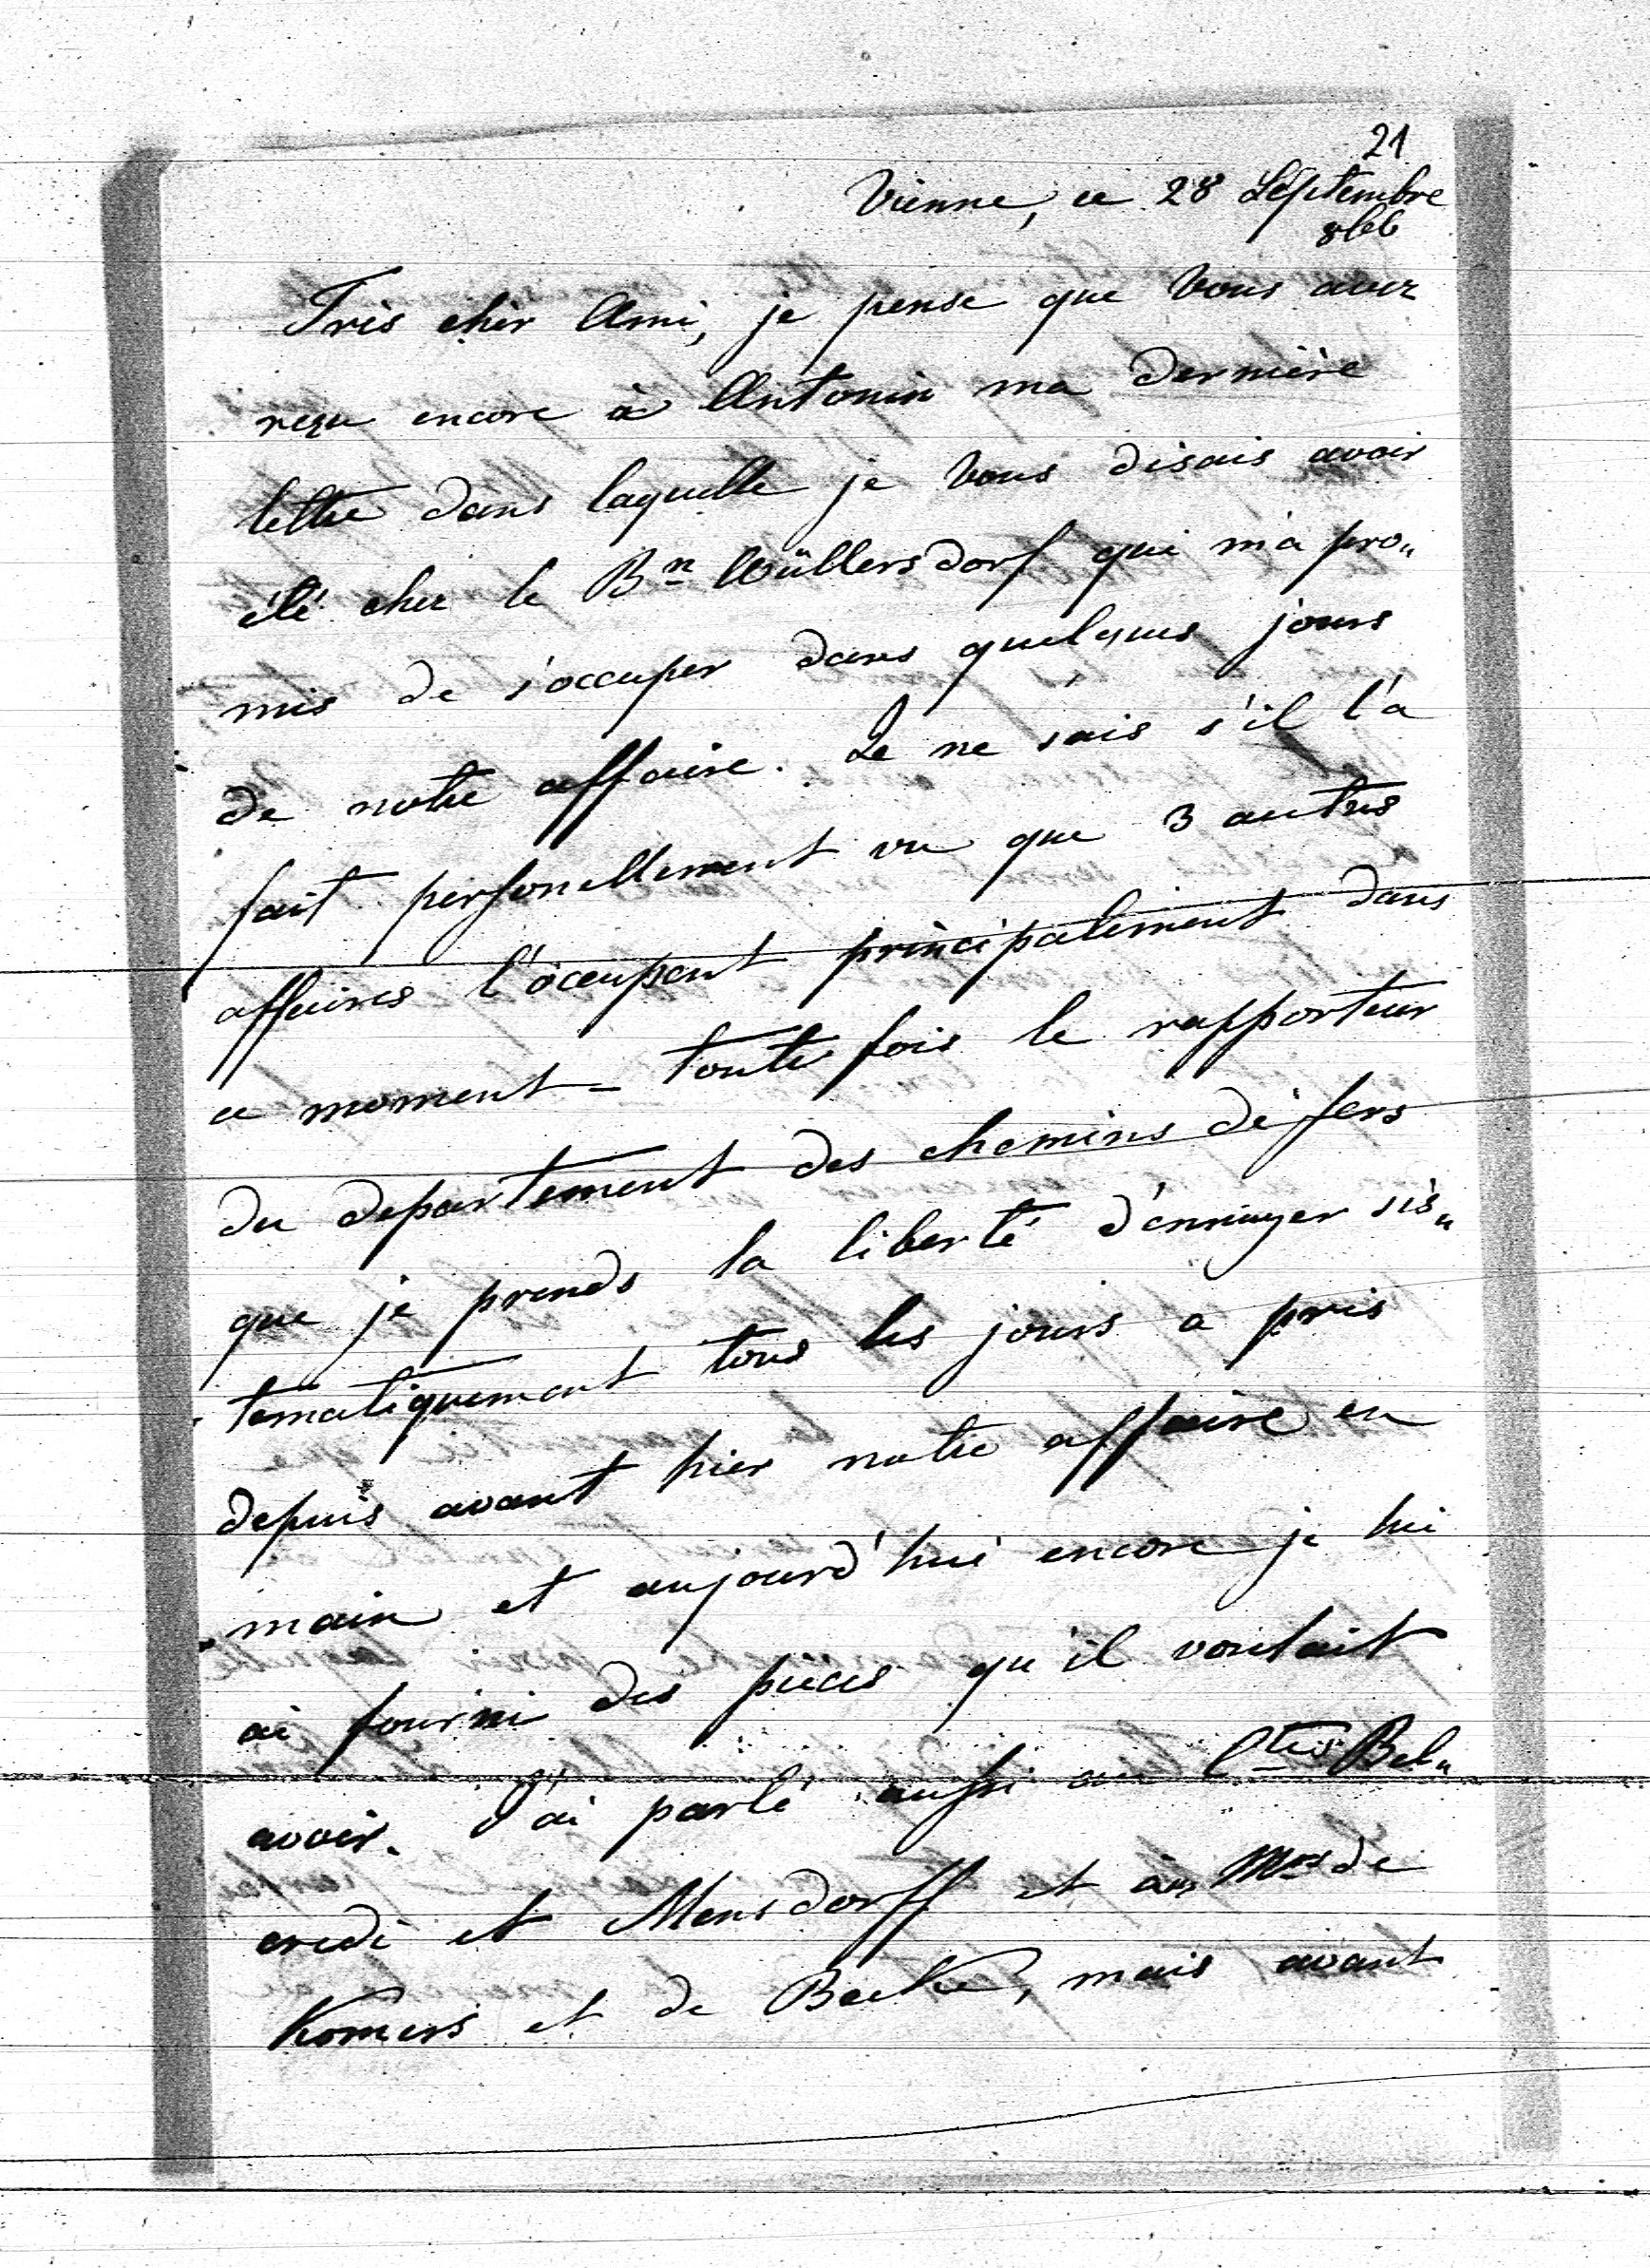 21
Vienne, ce 28 Septembre
866
Très chèr Ami, je pense que Vous avez
reçu encore à Antonin ma dernière
lettre dans laquelle je Vous disais avoir
été chez le Bn Wüllersdorf qui m'a pro„
mis de s'occuper dans quelques jours
de notre affaire. Je ne sais s'il l'a
fait personellement vu que 3 autres
affaires l'occupent principalement dans
ce moment = toute fois le rapporteur
du departement des chemins de fers
que je prends la liberté d'ennuyer sis„
tematiquement tous les jours a pris
depuis avant hier notre affaire en
main et aujourd'hui encore je lui
ai fourni des pièces qu'il voulait
avoir. J'ai parlé aussi au Ctes Bel„
credi et Mensdorff et à Mrs de
Komers et de Becke, mais avant